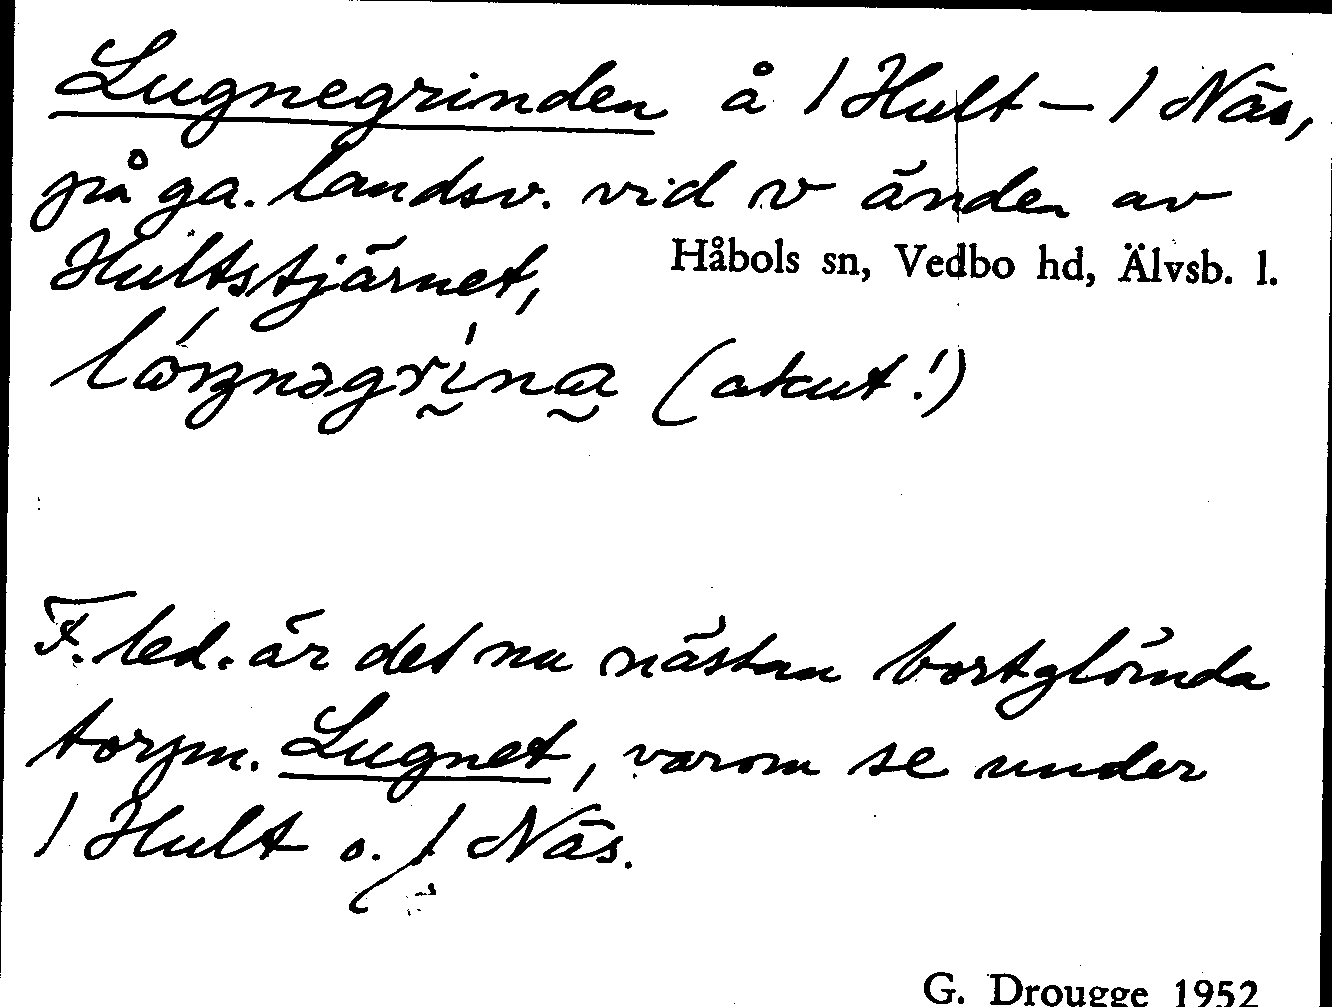 Lugnegrinden å 1 Hult – 1 Näs,
på ga. landsv. vid v änden av
Hultstjärnet,
Håbols sn, Vedbo hd, Älvsb. l.
(akut!)
F. led. är det nu nästan bortglömda
torpn. Lugnet, varom se under
1 Hult o. 1 Näs.
G. Drougge 1952